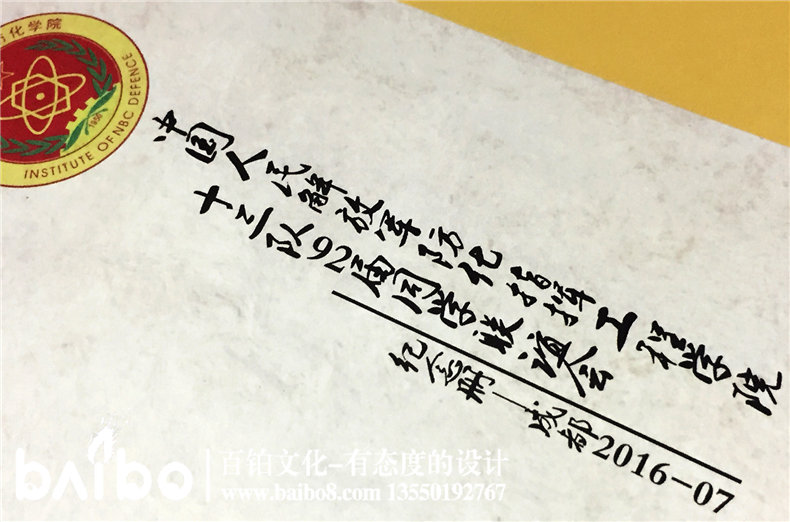 防化学院
INSTITUTE OF NBC DEFENCE
1950
中国人民解放军防化指挥工程学院
十三队92届同学联谊会
纪念册—成都2016-07
baibo
百铂文化-有态度的设计
www.baibo8.com 13550192767